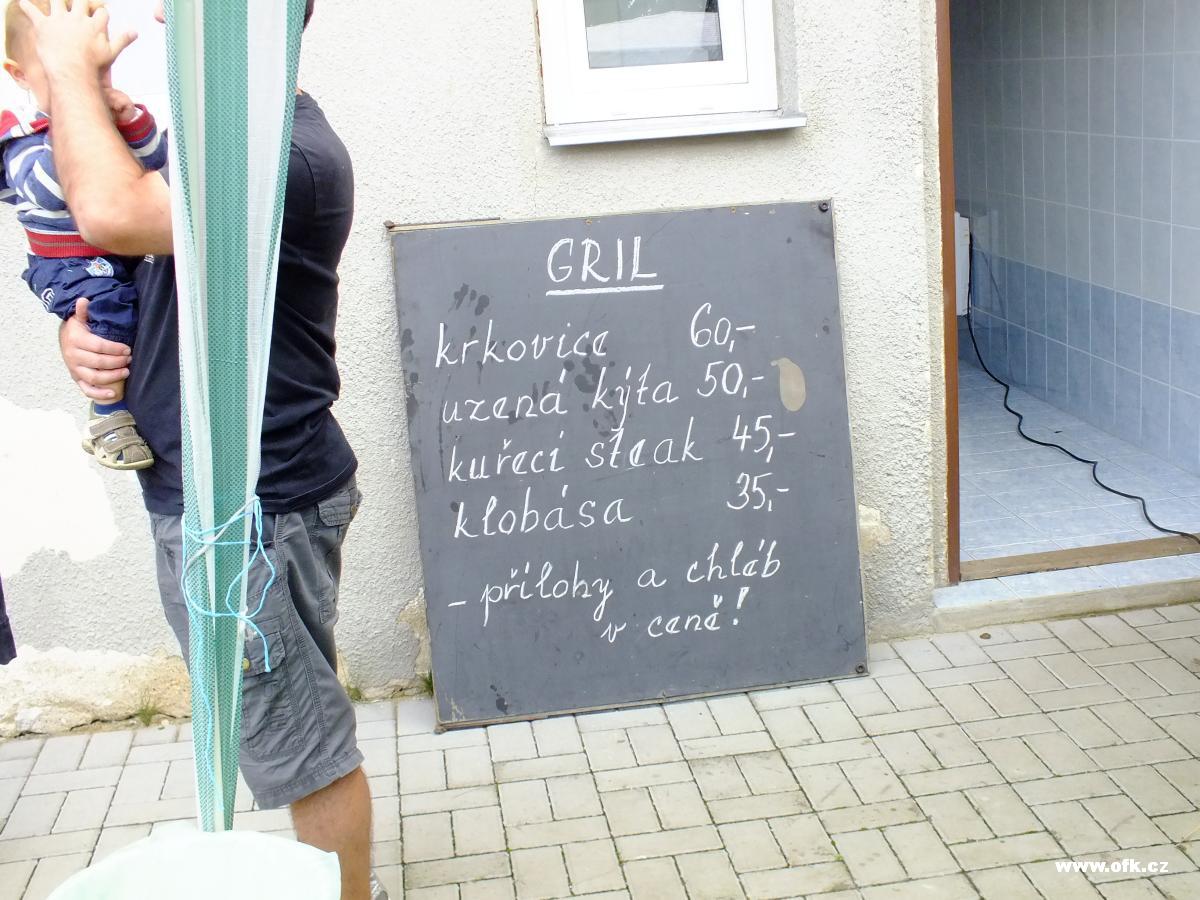 GRIL
krkovice 60,-
uzená kýta 50,-
kuřecí steak 45,-
klobása 35,-
- přílohy a chléb
v ceně!
www.ofk.cz